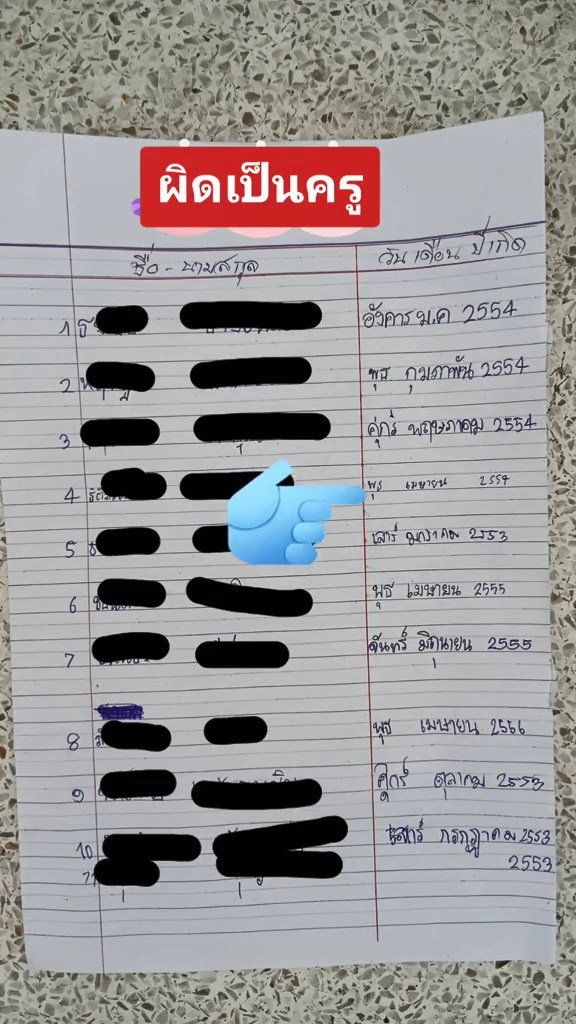 ผิดเป็นครู
ชื่อ - นามสกุล วัน เดือน ปีเกิด
1 ธ อังคาร ม.ค 2554
2 พุธ กุมภาพัน 2554
3 ศุกร์ พฤษภาคม 2554
4 พุธ เมษายน 2554
5 เสาร์ มกราคม 2553
6 พุธ เมษายน 2555
7 จันทร์ มิถุนายน 2555
8 พุธ เมษายน 2556
9 ศุกร์ ตุลาคม 2553
10 เสาร์ กรกฎาคม 2553
11 2553